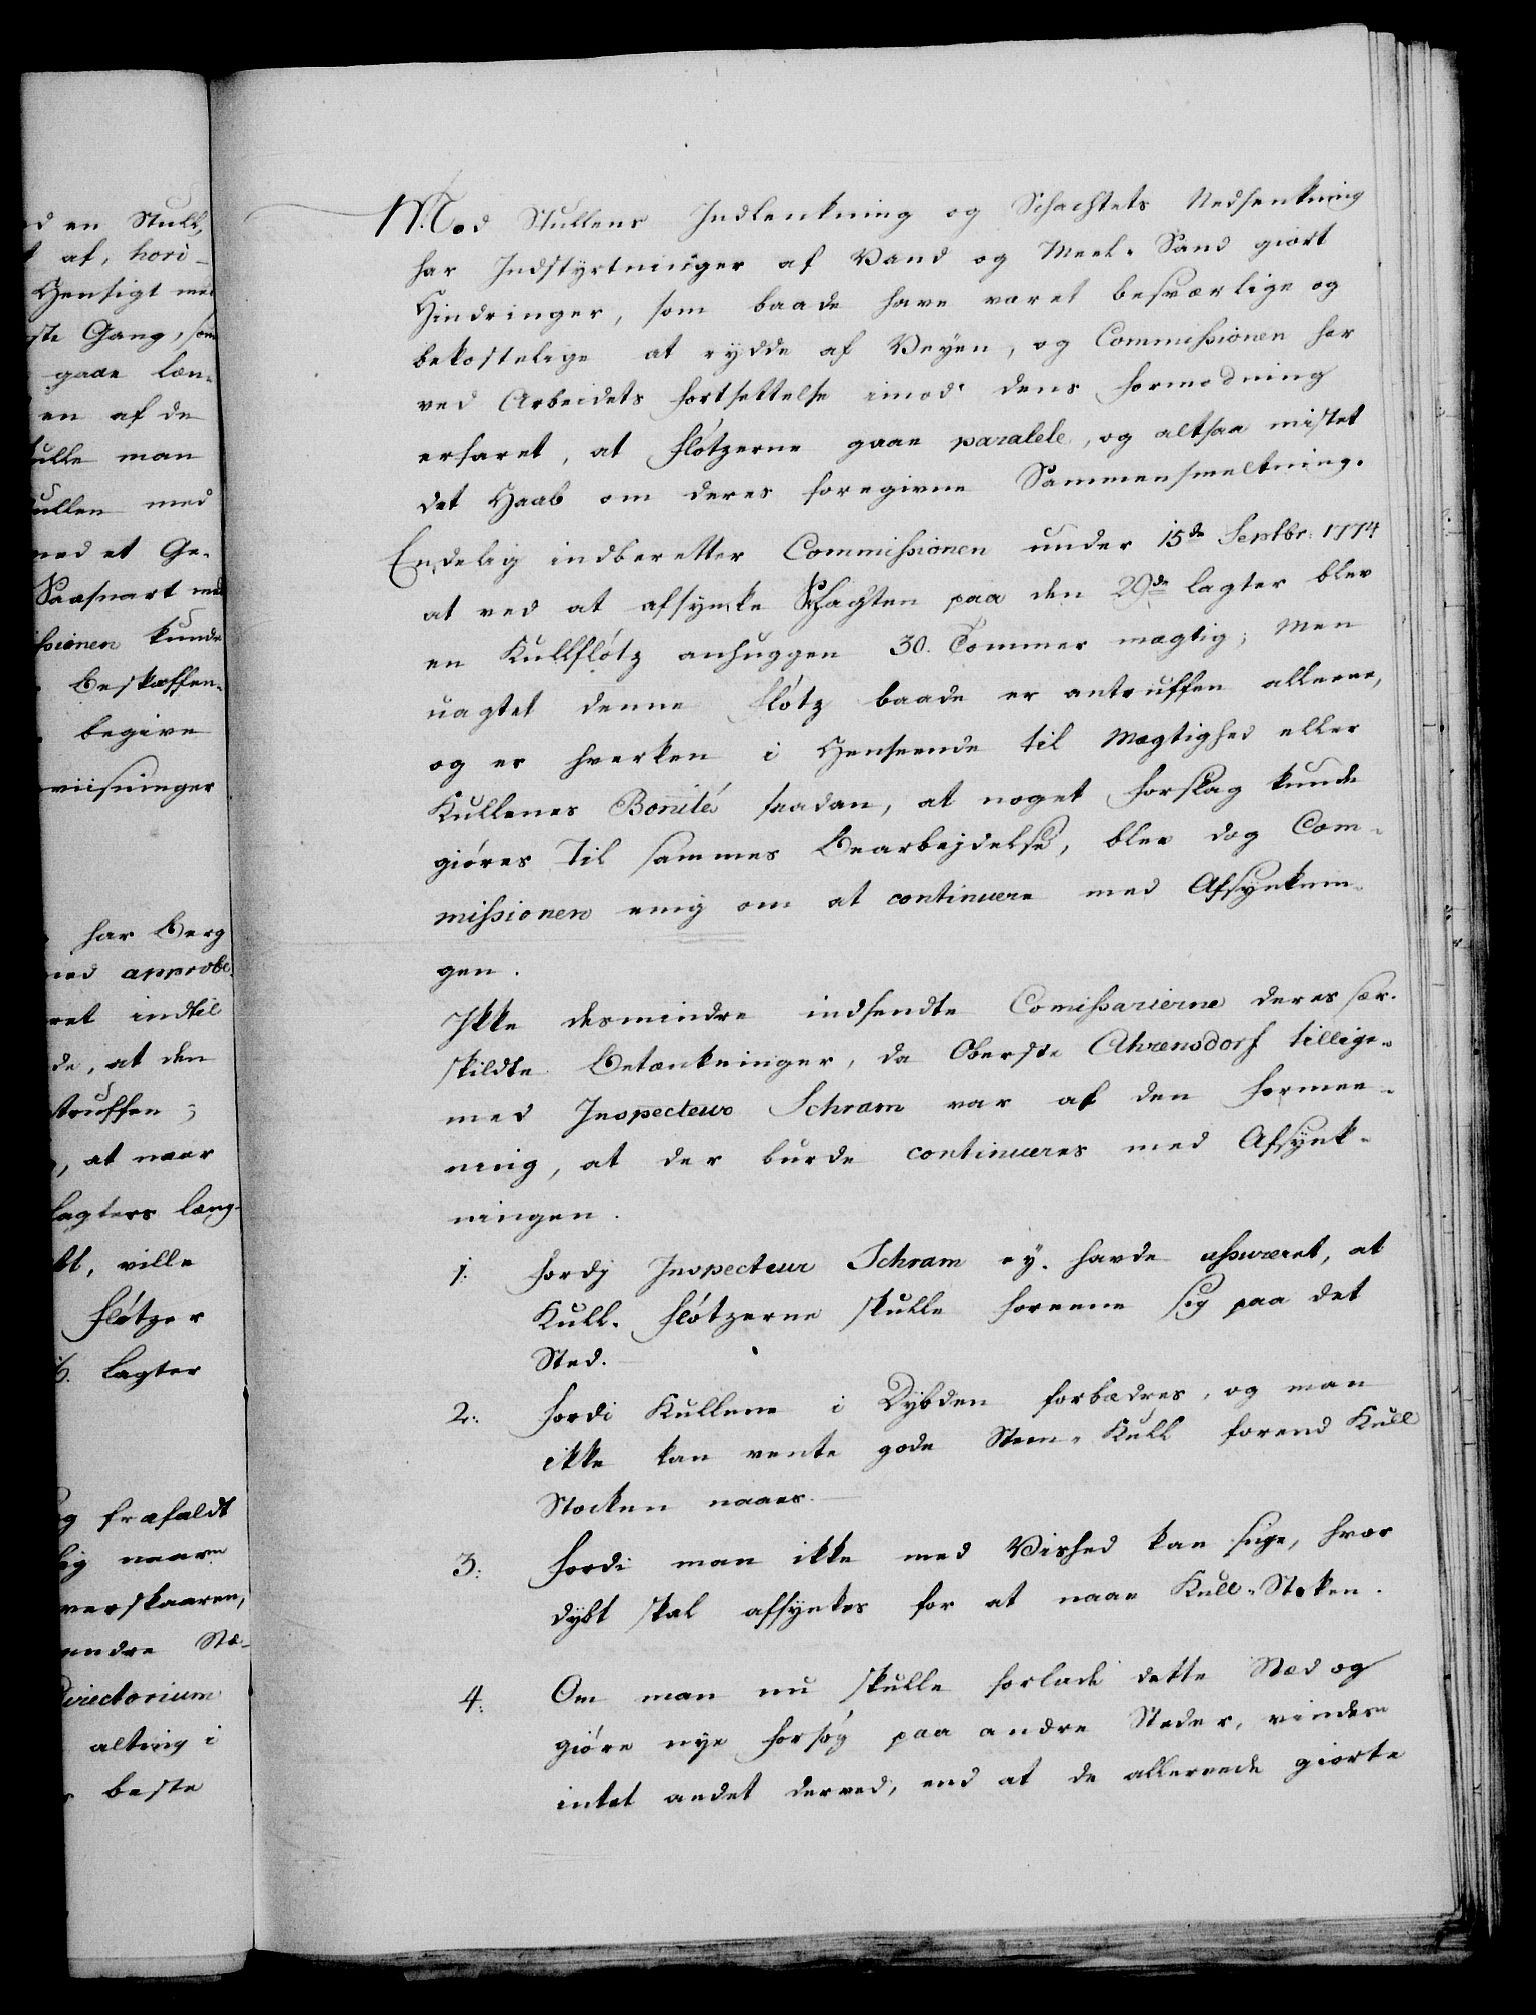 d en Stull,
t af, hori-
Hensigt med
ste Gang, som
gaae læn-
en af de
ulle man
ullen med
ned et Ge-
Saasnart med
ssionen kunde
Beskaffen-
begive
viisninger
har Berg
ned approbe-
ret indtil
de, at den
truffen;
, at naar
Lagters læng-
kt, ville
Fløtzer
6. Lagter
og frafaldt
ig naar
verskaaren,
andre Stæ-
Directorium
alting i
beste
Med Stullens Indlenkning og Schachtets Nedsenkning
har Indstyrtninger af Vand og Meel-Sand giort
Hindringer, som baade have været besværlige og
bekostelige at rydde af Veyen, og Commissionen har
ved Arbeidets Fortsettelse imod dens Formodning
erfaret, at Fløtzerne gaae paralele, og altsaa mistet
det Haab om deres foregivne Sammensmeltning.
Endelig indberetter Commissionen under 15de Septbr: 1774
at ved at afsynke Schagten paa den 29de Lagter blev
en Kullfløtz anhuggen 30. Tommer mægtig; Men
uagtet denne Fløtz baade er antruffen alleene,
og er hverken i Henseende til Mægtighed eller
Kullenes Bonité saadan, at noget Forslag kunde
giøres til sammes Bearbejdelse, blev dog Com-
missionen enig om at continuere med Afsynknin-
gen.
Ikke desmindre indsendte Comissarierne deres sær-
skildte Betænkninger, da Oberste Ahrensdorf tillige-
med Inspecteur Schram var af den Formee-
ning, at der burde continueres med Afsynk-
ningen.
1: Fordj Inspecteur Schram ey havde assureret, at
Kull-Fløtzerne skulle foreene sig paa det
Sted.
2: Fordi Kullene i Dybden forbædres, og man
ikke kan vente gode Steen-Kull forend Kull
Stocken naaes.
3: Fordi man ikke med Vished kan sige, hvor
dybt skal afsynkes for at naae Kull-Stoken.
4: Om man nu skulle forlade dette Stæd og
giøre nye Forsøg paa andre Steder, vindes
intet andet derved, end at de allerede giorte